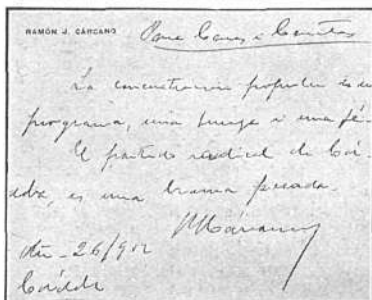 RAMÓN J. CÁRCANO
Para Caras i Caretas
La concentración popular es un
programa, una fuerza i una fé.
El partido radical de Cór-
doba, es una broma pesada.
RCárcano
26/912
Córdoba